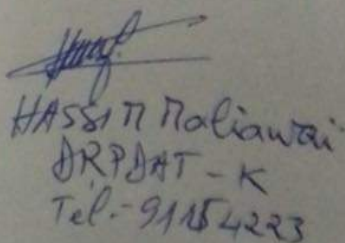 HASSIM Maliawai
DRPDAT-K
Tel.- 91154223